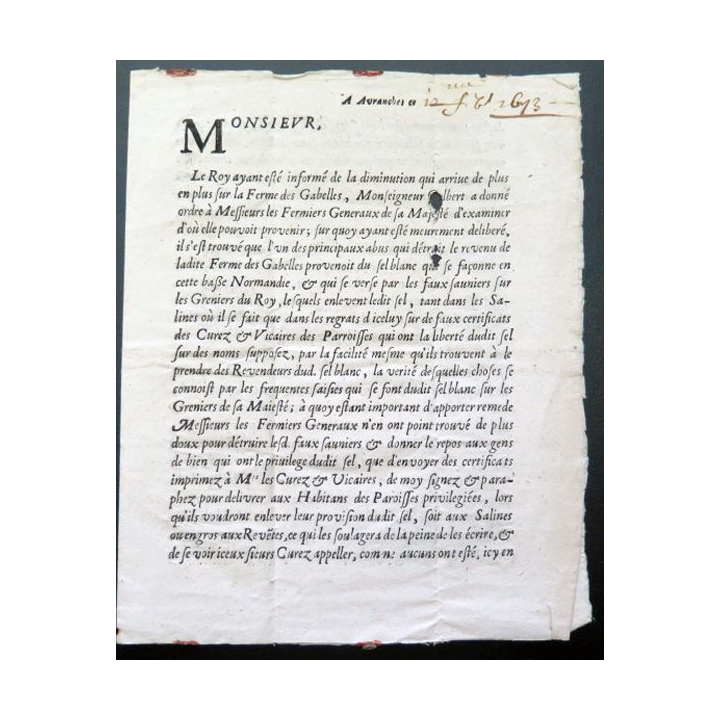 A Avranches ce 12 f 1673
MONSIEVR,
Le Roy ayant esté informé de la diminution qui arriue de plus
en plus sur la Ferme des Gabelles, Monseigneur Colbert a donné
ordre à Messieurs les Fermiers Generaux de sa Majesté d'examiner
d'où elle pouvoit provenir; sur quoy ayant esté meurement deliberé,
il s'est trouvé que l'vn des principaux abus qui détruit le revenu de
ladite Ferme des Gabelles provenoit du sel blanc que se façonne en
cette basse Normandie, & qui se verse par les faux sauniers sur
les Greniers du Roy, lesquels enlevent ledit sel, tant dans les Sa-
lines où il se fait que dans les regrats d'iceluy sur de faux certificats
des Curez & Vicaires des Parroisses qui ont la liberté dudit sel
sur des noms supposez, par la facilité mesme qu'ils trouvent à le
prendre des Revendeurs dud. sel blanc, la verité desquelles choses se
connoist par les frequentes saisies qui se font dudit sel blanc sur les
Greniers de sa Maiesté; à quoy estant important d'apporter remede
Messieurs les Fermiers Generaux n'en ont point trouvé de plus
doux pour détruire lesd. faux sauniers & donner le repos aux gens
de bien qui ont le privilege dudit sel, que d'envoyer des certificats
imprimez à Mrs les Curez & Vicaires, de moy signez & para-
phez pour delivrer aux Habitans des Paroisses privilegiées, lors
qu'ils voudront enlever leur provision dudit sel, soit aux Salines
ou en gros aux Revêtes, ce qui les soulagera de la peine de les écrire, &
de se voir iceux sieurs Curez appeller, comne aucuns ont esté, icy en